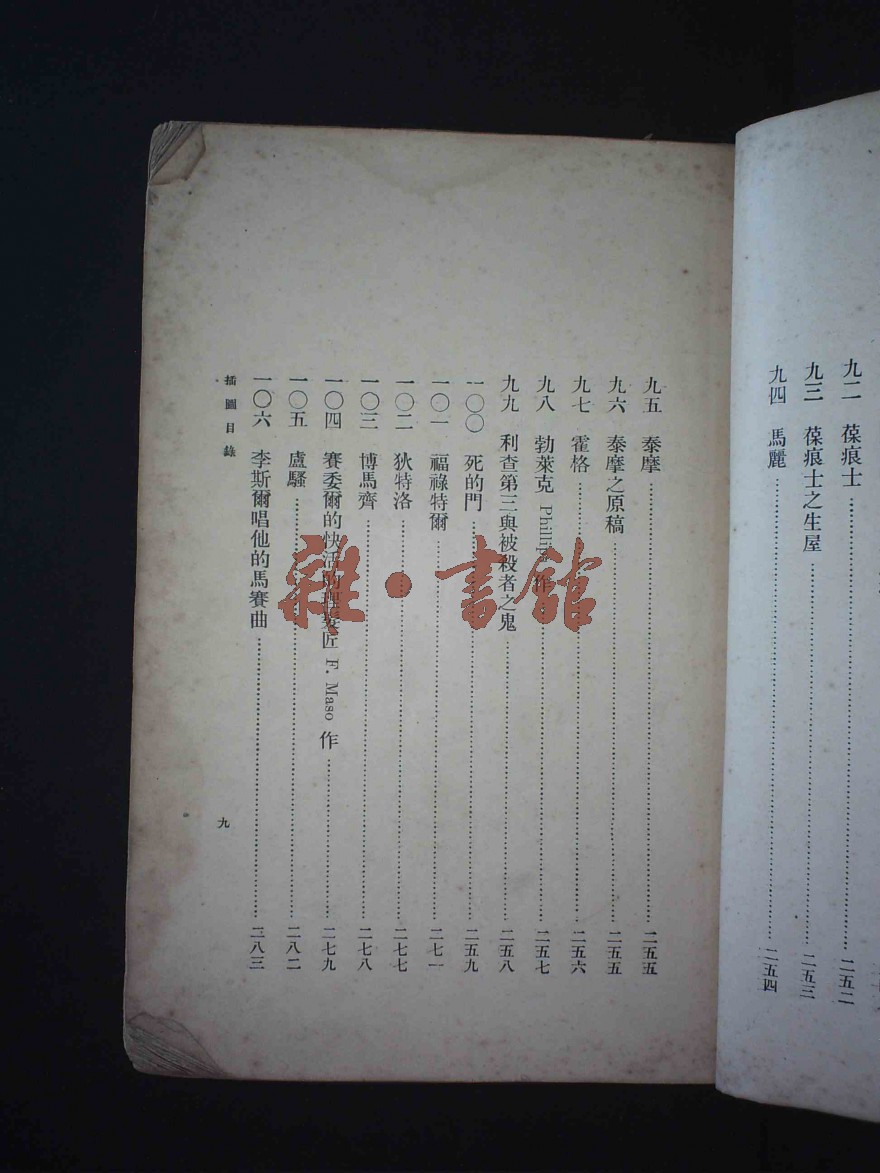 九二 葆痕士 二五二
九三 葆痕士之生屋 二五三
九四 馬麗 二五四
九五 泰摩 二五五
九六 泰摩之原稿 二五五
九七 霍格 二五六
九八 勃萊克 Phillips 作 二五七
九九 利查第三與被殺者之鬼 二五八
一〇〇 死的門 二五九
一〇一 福祿特爾 二七一
一〇二 狄特洛 二七七
一〇三 博馬齊 二七八
一〇四 賽委爾的快活的理髮匠 F. Maso 作 二七九
一〇五 盧騷 二八二
一〇六 李斯爾唱他的馬賽曲 二八三
插圖目錄
九
雜·書館